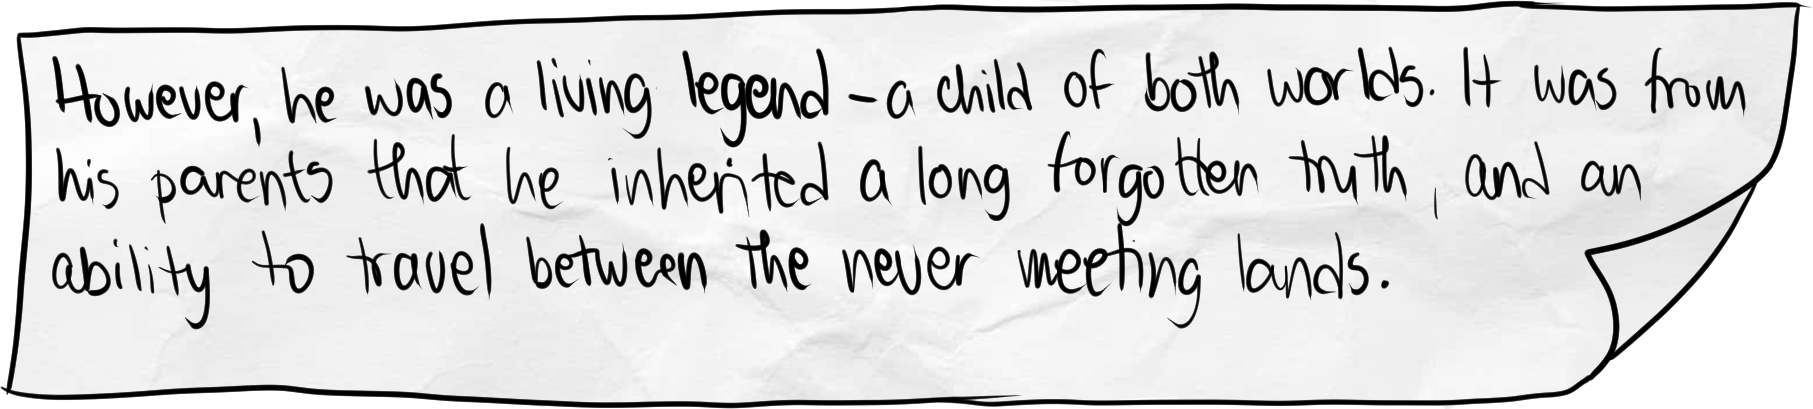 However, he was a living legend - a child of both worlds. It was from
his parents that he inherited a long forgotten truth, and an
ability to travel between the never meeting lands.